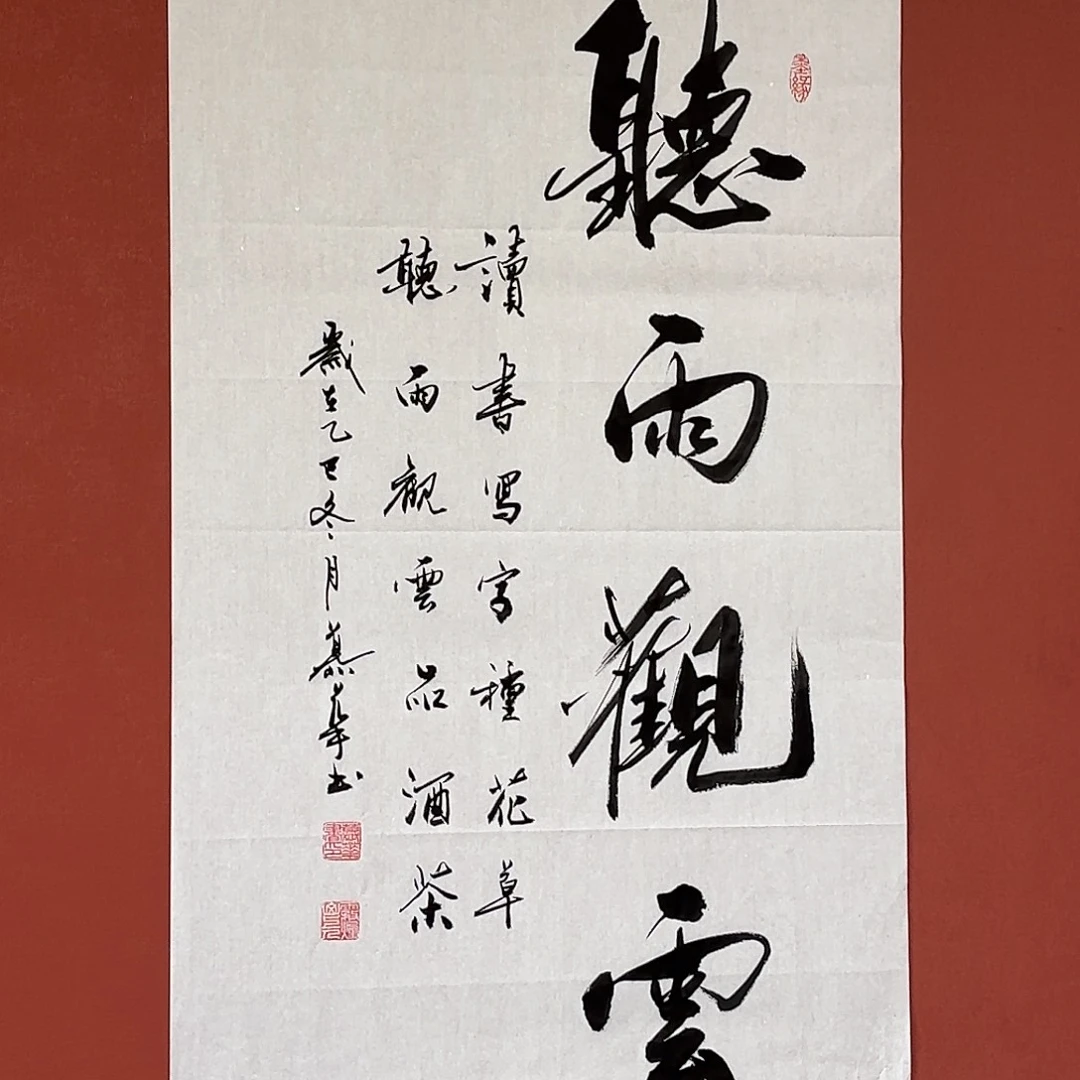 聽雨觀雲
讀書写字種花草
聽雨觀雲品酒茶
歲在乙巳冬月慕華书
墨缘